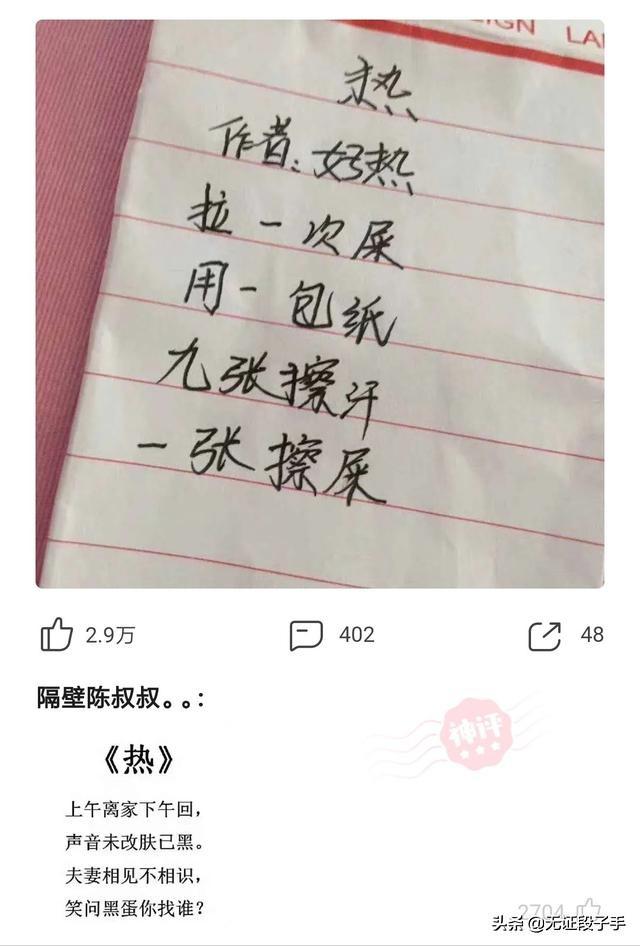 热
作者:好热
拉一次屎
用一包纸
九张擦汗
一张擦屎
2.9万
402
48
隔壁陈叔叔。。:
神评
《热》
上午离家下午回，
声音未改肤已黑。
夫妻相见不相识，
笑问黑蛋你找谁？
2704
头条 @无证段子手